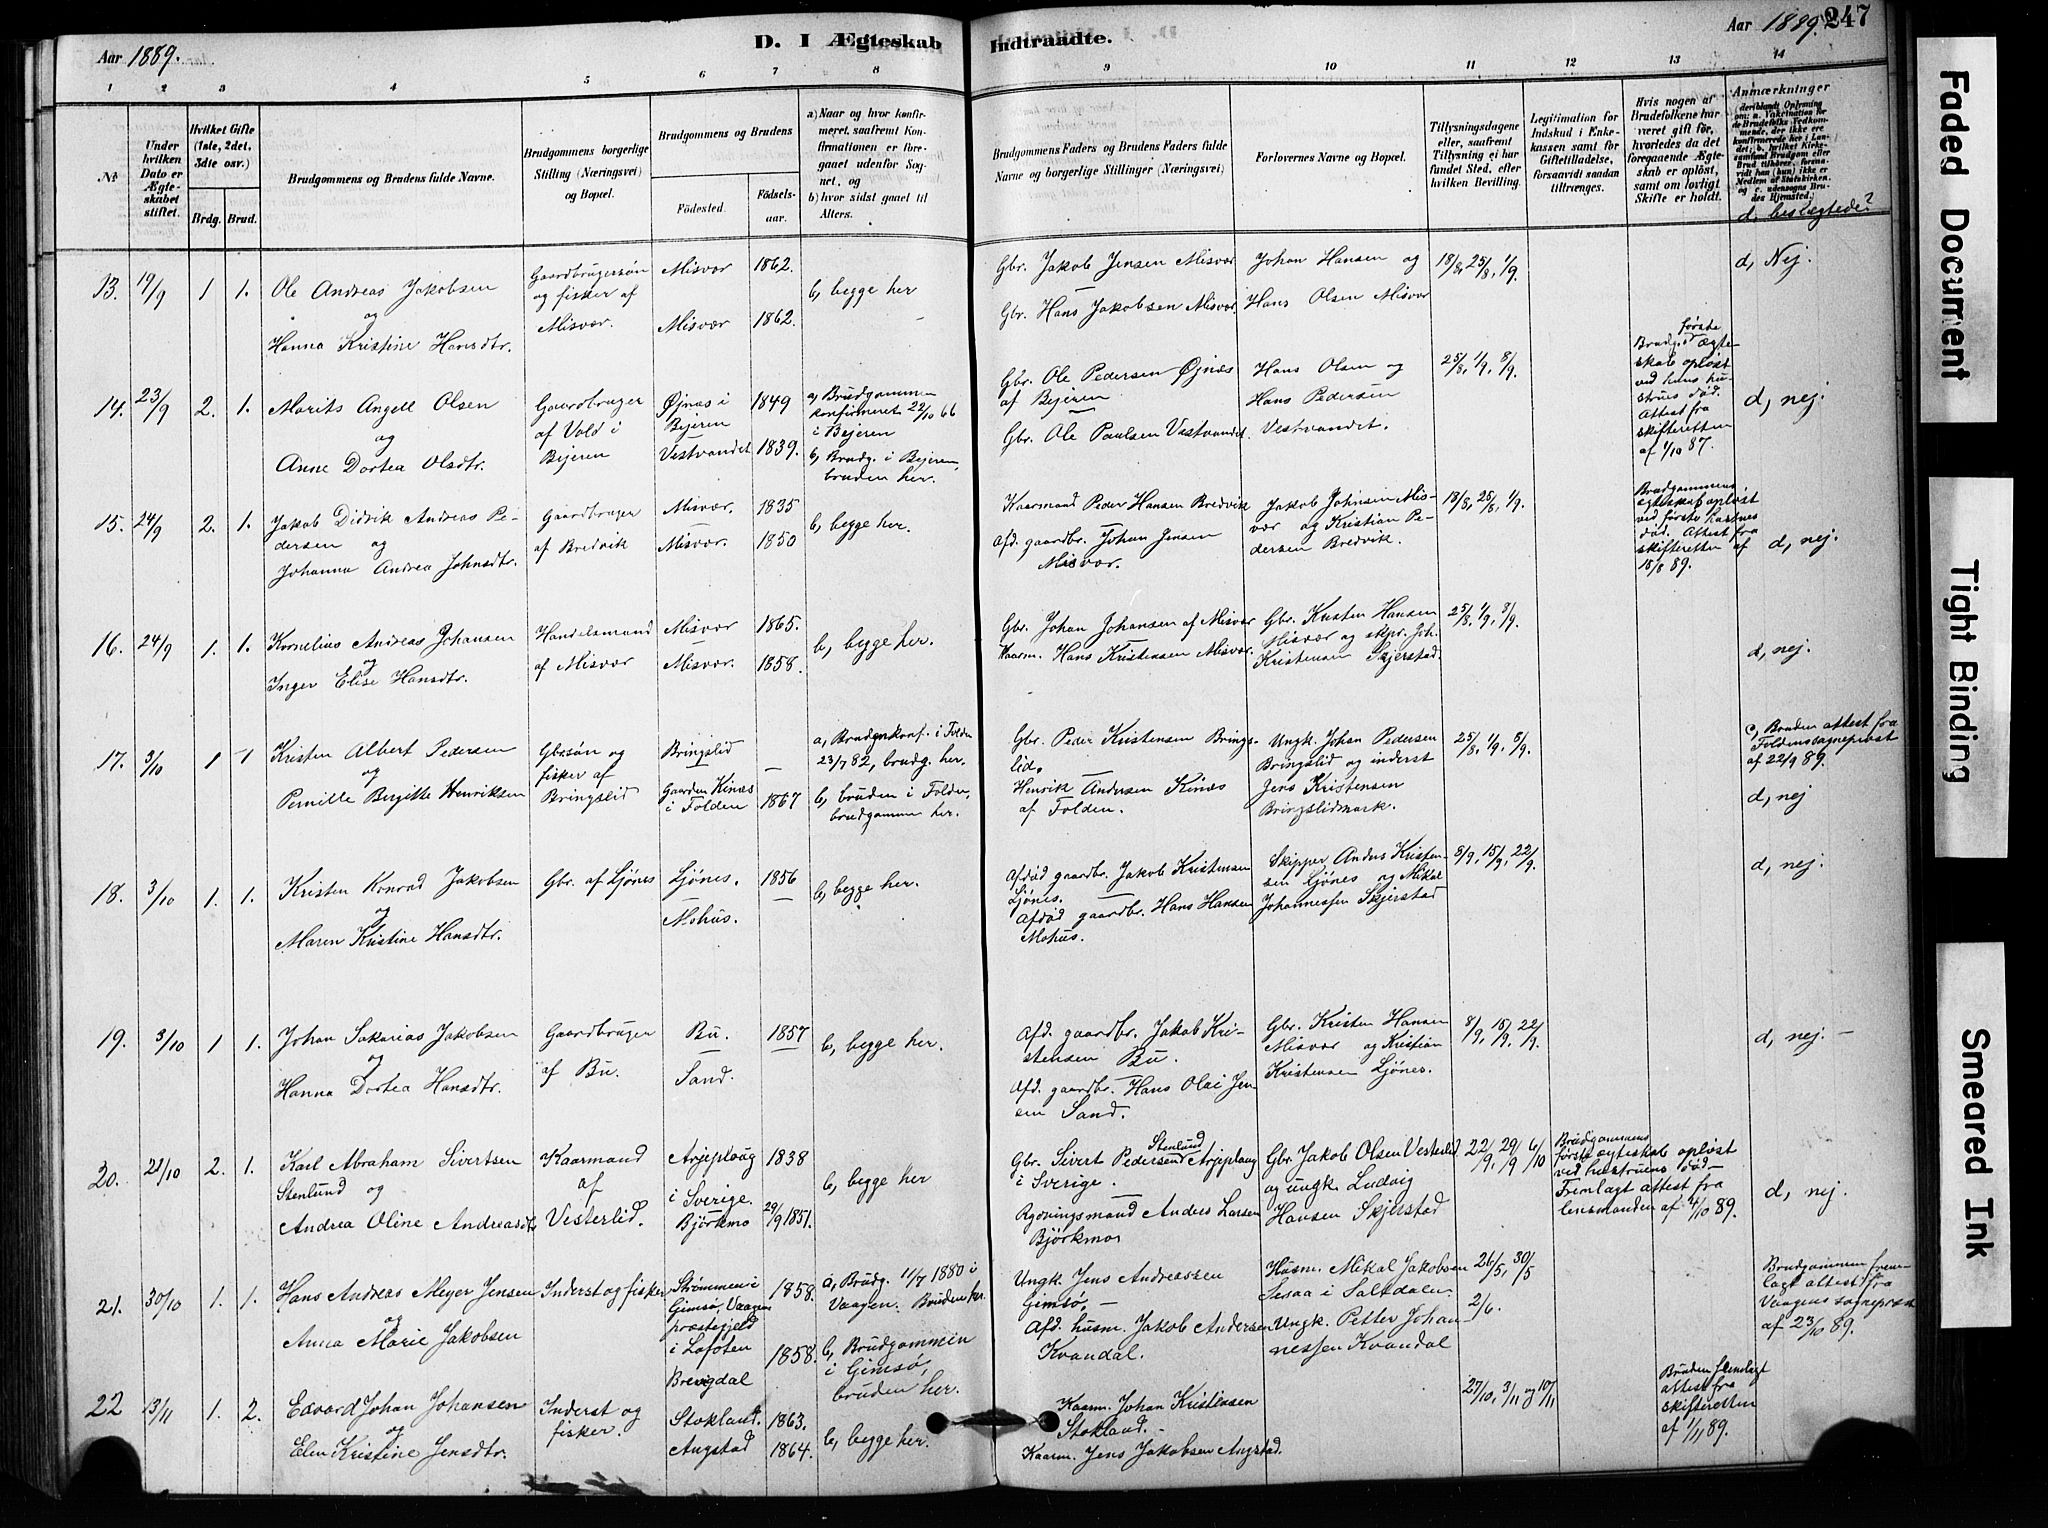 Aar 1889.
D. I Ægteskab
Indtraadte.
Aar 1889. 247
1 2 3 4 5 6 7 8 9 10 11 12 13 14
Nr.
Under hvilken Dato er Ægteskabet stiftet.
Hvilket Gifte (1ste, 2det, 3die osv.)
Brdg. Brud.
Brudgommens og Brudens fulde Navne.
Brudgommens borgerlige Stilling (Næringsvei) og Bopæl.
Brudgommens og Brudens
Födested.
Födselsaar.
a) Naar og hvor konfirmeret, saafremt Konfirmationen er foregaaet udenfor Sognet, og
b) hvor sidst gaaet til Alters.
Brudgommens Faders og Brudens Faders fulde Navne og borgerlige Stillinger (Næringsvei)
Forlovernes Navne og Bopæl.
Tillysningsdagene eller, saafremt Tillysning ei har fundet Sted, efter hvilken Bevilling.
Legitimation for Indskud i Enkekassen samt for Giftetilladelse, forsaavidt saadan tiltrænges.
Hvis nogen af Brudefolkene har været gift för, hvorledes da det foregaaende Ægteskab er oplöst, samt om lovligt Skifte er holdt.
Anmærkninger
d, beslægtede?
13. 19/9 1 1. Ole Andreas Jakobsen
og
Hanna Kristine Hansdtr.
Gaardbrugersøn
og fisker af
Misvær.
Misvær 1862.
Misvær 1862.
b, begge her
Gbr. Jakob Jensen Misvær
Gbr. Hans Jakobsen Misvær
Johan Hansen og
Hans Olsen Misvær
18/8, 25/8, 1/9.
d, Nej.
14. 23/9 2. 1. Marits Angell Olsen
og
Anne Dortea Olsdtr.
Gaardbruger
af Vold i
Bejeren
Øjnæs i
Bejeren 1849
Vestvandet 1839.
a, Brudgommen
konfirmeret 22/10 66
i Bejeren
b, Brudg. i Bejeren,
bruden her.
Gbr. Ole Pedersen Øjnæs
af Bejeren
Gbr. Ole Paulsen Vestvandet.
Hans Olsen og
Hans Pedersen
Vestvandet.
25/8, 1/9, 8/9.
Brudg.s første ægte-
skab opløst
ved hans hu-
strues död.
Attest fra
skifteretten
af 1/10 87.
d, nej.
15. 24/9 2. 1. Jakob Didrik Andreas Pe-
dersen og
Johanna Andrea Johnsdtr.
Gaardbruger
af Bredvik
Misvær. 1835
Misvær. 1850
b, begge her.
Kaarmand Peder Hansen Bredvik
Afd. gaardbr. Johan Jensen
Misvær.
Jakob Johnsen Mis-
vær og Kristian Pe-
dersen Bredvik.
18/8, 25/8, 1/9.
Brudgommens
ægteskab opløst
ved første kones
död. Attest fra
skifteretten af
18/8 89.
d, nej.
16. 24/9 1. 1. Kornelius Andreas Johansen
og
Inger Elise Hansdtr.
Handelsmand
af Misvær
Misvær 1865.
Misvær. 1858.
b, begge her.
Gbr. Johan Johansen af Misvær
Kaarm. Hans Kristensen Misvær.
Gbr. Kristen Hansen
Misvær og skpr. Joh.
Kristensen Skjerstad.
25/8, 1/9, 8/9.
d, nej.
17. 3/10 1 1 Kristen Albert Pedersen
og
Pernille Bergitte Henriksen
Gbrsøn og
fisker af
Bringslid
Bringslid —
Gaarden Kinæs
i Folden 1867
a, Bruden konf. i Folden
23/7 82, brudg. her.
b, bruden i Folden,
brudgommen her.
Gbr. Peder Kristensen Brings-
lid.
Henrik Andersen Kinæs
af Folden.
Ungk. Johan Pedersen
Bringslid og inderst
Jens Kristensen
Bringslidmark.
25/8, 1/9, 5/9.
c, Bruden attest fra
Foldens sognepræst
af 22/9 89.
d, nej
18. 3/10 1. 1. Kristen Konrad Jakobsen
og
Maren Kristine Hansdtr.
Gbr. af Ljönes
Ljönes. 1856
Mohus. —
b, begge her.
Afdød gaardbr. Jakob Kristensen
Ljönes.
Afdød gaardbr. Hans Hansen
Mohus.
Skipper Anders Kristen-
sen Ljönes og Mikal
Johannessen Skjerstad
8/9, 15/9, 22/9.
d, nej.
19. 3/10 1 1. Johan Sakarias Jakobsen
og
Hanna Dortea Hansdtr.
Gaardbruger
af Bu.
Bu. 1857
Sand.
b, begge her.
Afd. gaardbr. Jakob Kri-
stensen Bu.
Afd. gaardbr. Hans Olai Jen-
sen Sand.
Gbr. Kristen Hansen
Misvær og Kristian
Kristensen Ljönes.
8/9, 15/9, 22/9.
d, nej. —
20. 22/10 2. 1. Karl Abraham Sivertsen
Stenlund og
Andrea Oline Andreasdtr.
Kaarmand
af
Vesterlid.
Arjeplaug 1838
i Sverige.
Björkmo 29/9 1851.
b, begge her
Gbr. Sivert Pedersen Stenlund Arjeplaug
i Sverige.
Rydningsmand Anders Larsen
Björkmo
Gbr. Jakob Olsen Vesterlid
og ungk. Ludvig
Hansen Skjerstad
22/9, 29/9 6/10
Brudgommens
første ægteskab opløst
ved hustruens død —
Fremlagt attest fra
lensmanden af 4/10 89.
d, nej.
21. 30/10 1. 1. Hans Andreas Meyer Jensen
og
Anna Marie Jakobsen
Inderst og fisker
Strømmen i
Gimsø, Vaagen
præstegjeld
i Lofoten 1858.
Brengdal 1858.
a, Brudg. 11/7 1880 i
Vaagen. Bruden her.
b, Brudgommen
i Gimsø,
bruden her.
Ungk. Jens Andreassen
Gimsø, —
Afd. husm. Jakob Andersen
Kvandal.
Husm. Mikal Jakobsen
Sesaa i Saltdalen.
Ungk. Petter Johan-
nessen Kvandal
26/5, 30/5
2/6.
Brudgommen frem-
lagt attest fra
Vaagens sognepræst
af 23/10 89.
22 13/11 1. 2. Edvard Johan Johansen
og
Elen Kristine Jensdtr.
Inderst og
fisker.
Stokland. 1863.
Angstad 1864.
b, begge her.
Kaarm. Johan Kristensen
Stokland. —
Kaarm. Jens Jakobsen Angstad.
27/10, 3/11 og 10/11
Bruden fremlagt
attest fra
skifteretten
af 1/11 89.
Faded Document
Tight Binding
Smeared Ink